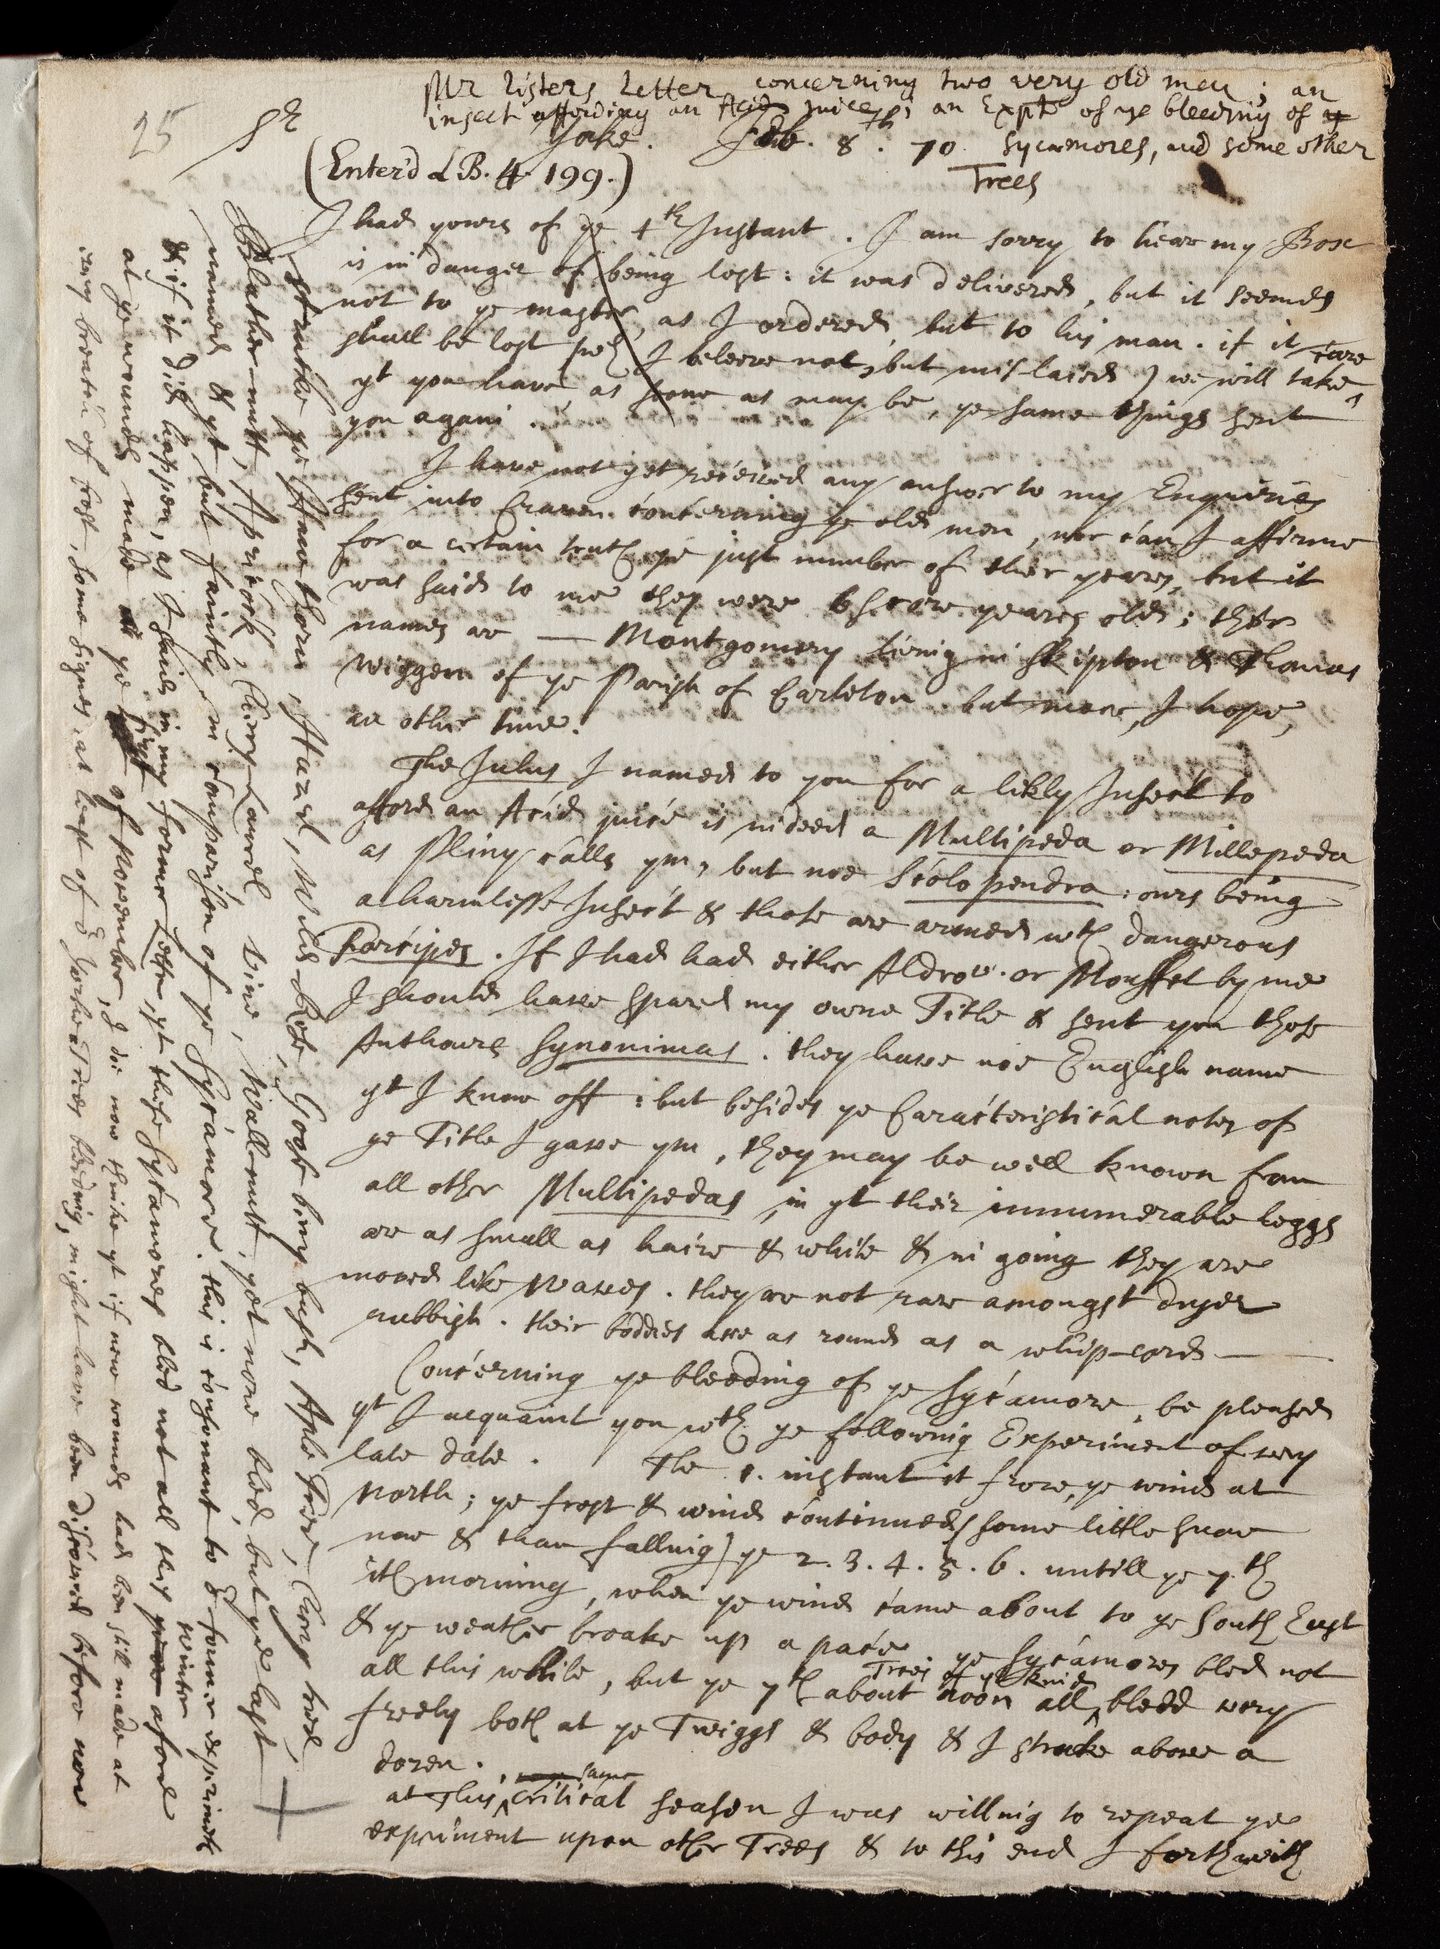 25
Mr Listers Letter concerning two very old men; an
insect affording an Acid Juice; an Expt of ye bleeding of ye
Sycamores, and some other
Trees
Sr
Yorke. Feb. 8th. 70
(Enter'd LB. 4. 199.)
I had yours of ye 4th Instant. I am sorry to hear my Box
is in danger of being lost: it was delivered, but it seemes
not to ye master, as I ordered, but to his man. if it
shall be lost (wch I beleeve not, but mislaied) we will take care
yt you have, as soone as may be, ye same things sent
you again.
I have not yet received any answer to my Enquiries
sent into Craven concerning ye old men, nor can I affirme
for a certain truth ye just number of their yeares, but it
was said to me they were 6 score yeares old; their
names are — Montgomery living in Skipton & Thomas
Wiggen of ye Parish of Carleton. but more, I hope,
an other time.
The Julus I named to you for a likly Insect to
afford an Acid juice is indeed a Multipeda or Millepeda
as Pliny calls ym, but noe Scolopendra: ours being
a harmlesse Insect & those are armed wth dangerous
Forcipes. If I had had either Aldrov. or Mouffet by me
I should have spared my owne Title & sent you those
Authours Synonimas. they have noe English name
yt I know off: but besides ye Caracteristical notes of
ye Title I gave ym, they may be well known from
all other Multipedas, in yt their innumerable leggs
are as small as haire & white & in going they are
moved like waves. they are not rare amongst dryer
rubbish. their boddies are as round as a whip-cord —
Concerning ye bleeding of ye Sycamore, be pleased
yt I acquaint you wth ye following Experiment of very
late date. The 1. instant it froze, ye wind at
North; ye frost & wind continued (some little snow
now & than falling) ye 2. 3. 4. 5. 6. untill ye 7.th
ith morning, when ye wind came about to ye South East
& ye weather broake up a pace. ye Sycamores bled not
all this while, but ye 7th about noon all Trees of yt kind bledd very
freely both at ye Twiggs & body & I struke above a
dozen.
at This same critical season I was willing to repeat ye
experiment upon other Trees & to this end I forthwith
struke ye Hawthorn, Hazel, Wild-Rose, Goosberry bush, Aple Tree, Cherry tree,
Blather-nutt, Apricock, Cherry-Laurel, Vine, Wallnutt, yet none bled but ye last
named & yt but faintly in comparison of ye Sycamore. this is consonant to or former experiments
& if it did happen, as I said in my former Letter, yt these Sycamores bled not all this winter aford
at ye wounds made ye first of November, I do now thinke yt if new wounds had been still made at
every breach of frost, some signes, at least of or Yorke Trees bleeding, might have been discovered before now